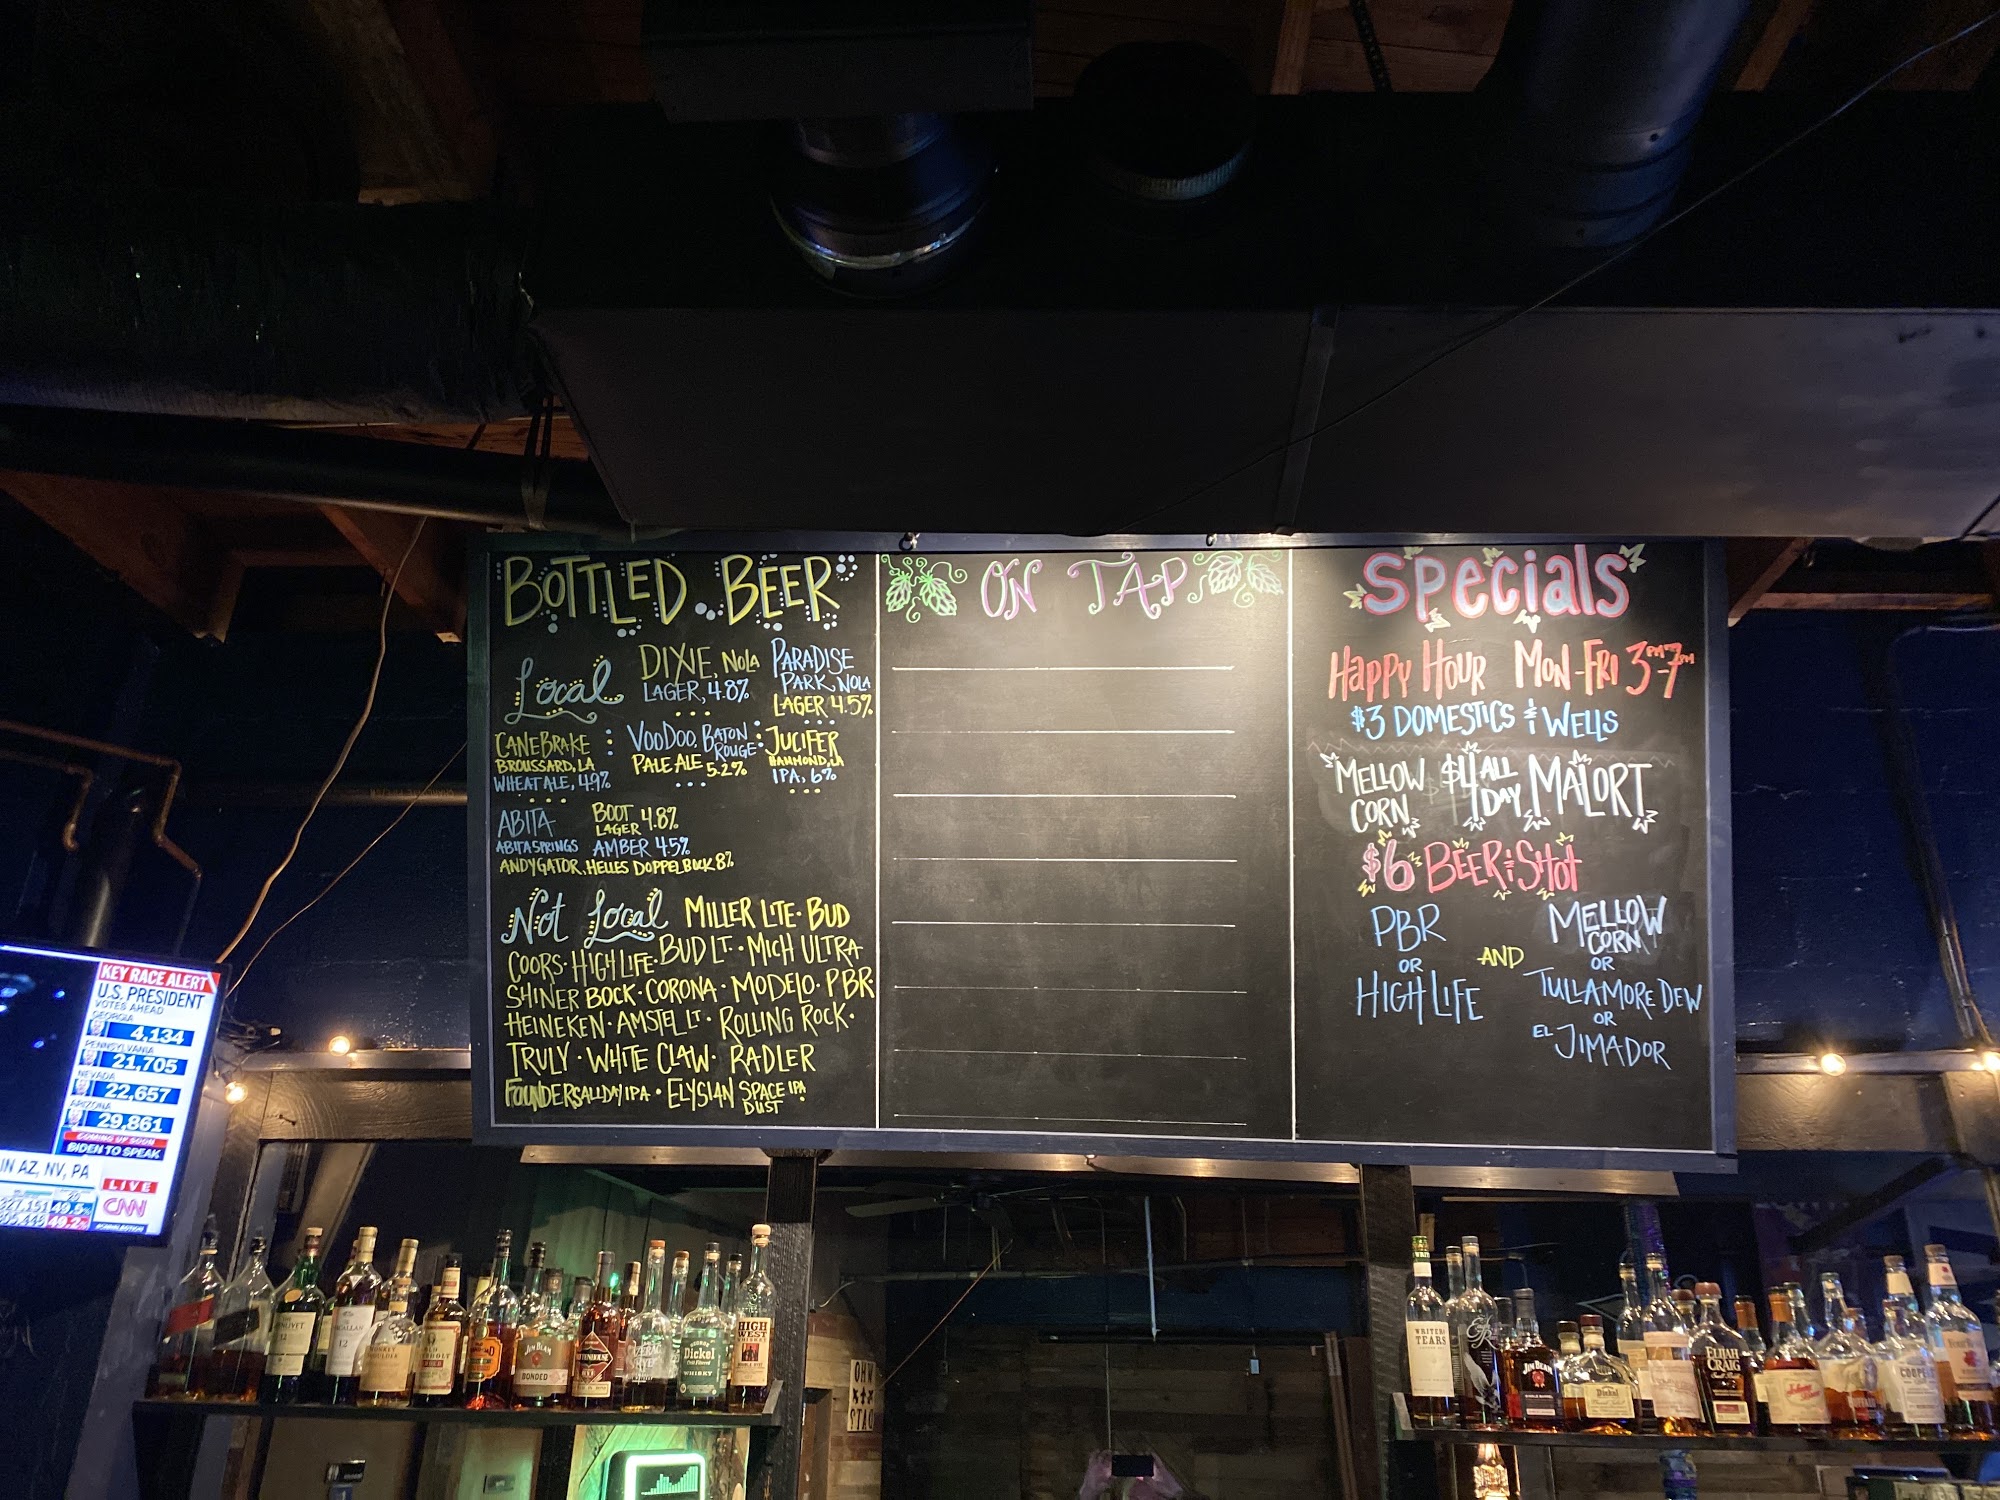 BOTTLED BEER
Local
DIXIE, NOLA
LAGER, 4.8%
PARADISE
PARK, NOLA
LAGER 4.5%
CANEBRAKE
BROUSSARD, LA
WHEAT ALE, 4.9%
VOODOO, BATON ROUGE
PALE ALE 5.2%
JUCIFER
HAMMOND, LA
IPA, 6%
ABITA
ABITA SPRINGS
BOOT 4.8%
LAGER
AMBER 4.5%
ANDYGATOR, HELLES DOPPELBOCK 8%
Not Local MILLER LITE · BUD
COORS · HIGH LIFE · BUD LT. · MICH ULTRA
SHINER BOCK · CORONA · MODELO · PBR
HEINEKEN · AMSTEL LT · ROLLING ROCK ·
TRULY · WHITE CLAW · RADLER
FOUNDERS ALL DAY IPA · ELYSIAN SPACE DUST IPA
ON TAP
Specials
Happy Hour Mon-Fri 3PM-7PM
$3 DOMESTICS & WELLS
MELLOW CORN $4 ALL DAY MALORT
$6 BEER & SHOT
PBR
OR
HIGH LIFE
AND
MELLOW
CORN
OR
TULLAMORE DEW
OR
EL JIMADOR
KEY RACE ALERT
U.S. PRESIDENT
VOTES AHEAD
GEORGIA
4,134
PENNSYLVANIA
21,705
NEVADA
22,657
ARIZONA
29,861
COMING UP SOON
BIDEN TO SPEAK
IN AZ, NV, PA
LIVE
CNN
49.5%
49.2%
MACALLAN
12
JIM BEAM
BONDED
RITTENHOUSE
Dickel
WHISKY
HIGH
WEST
WRITERS
TEARS
JIM BEAM
Dickel
ELIJAH
CRAIG
WHO
DAT?